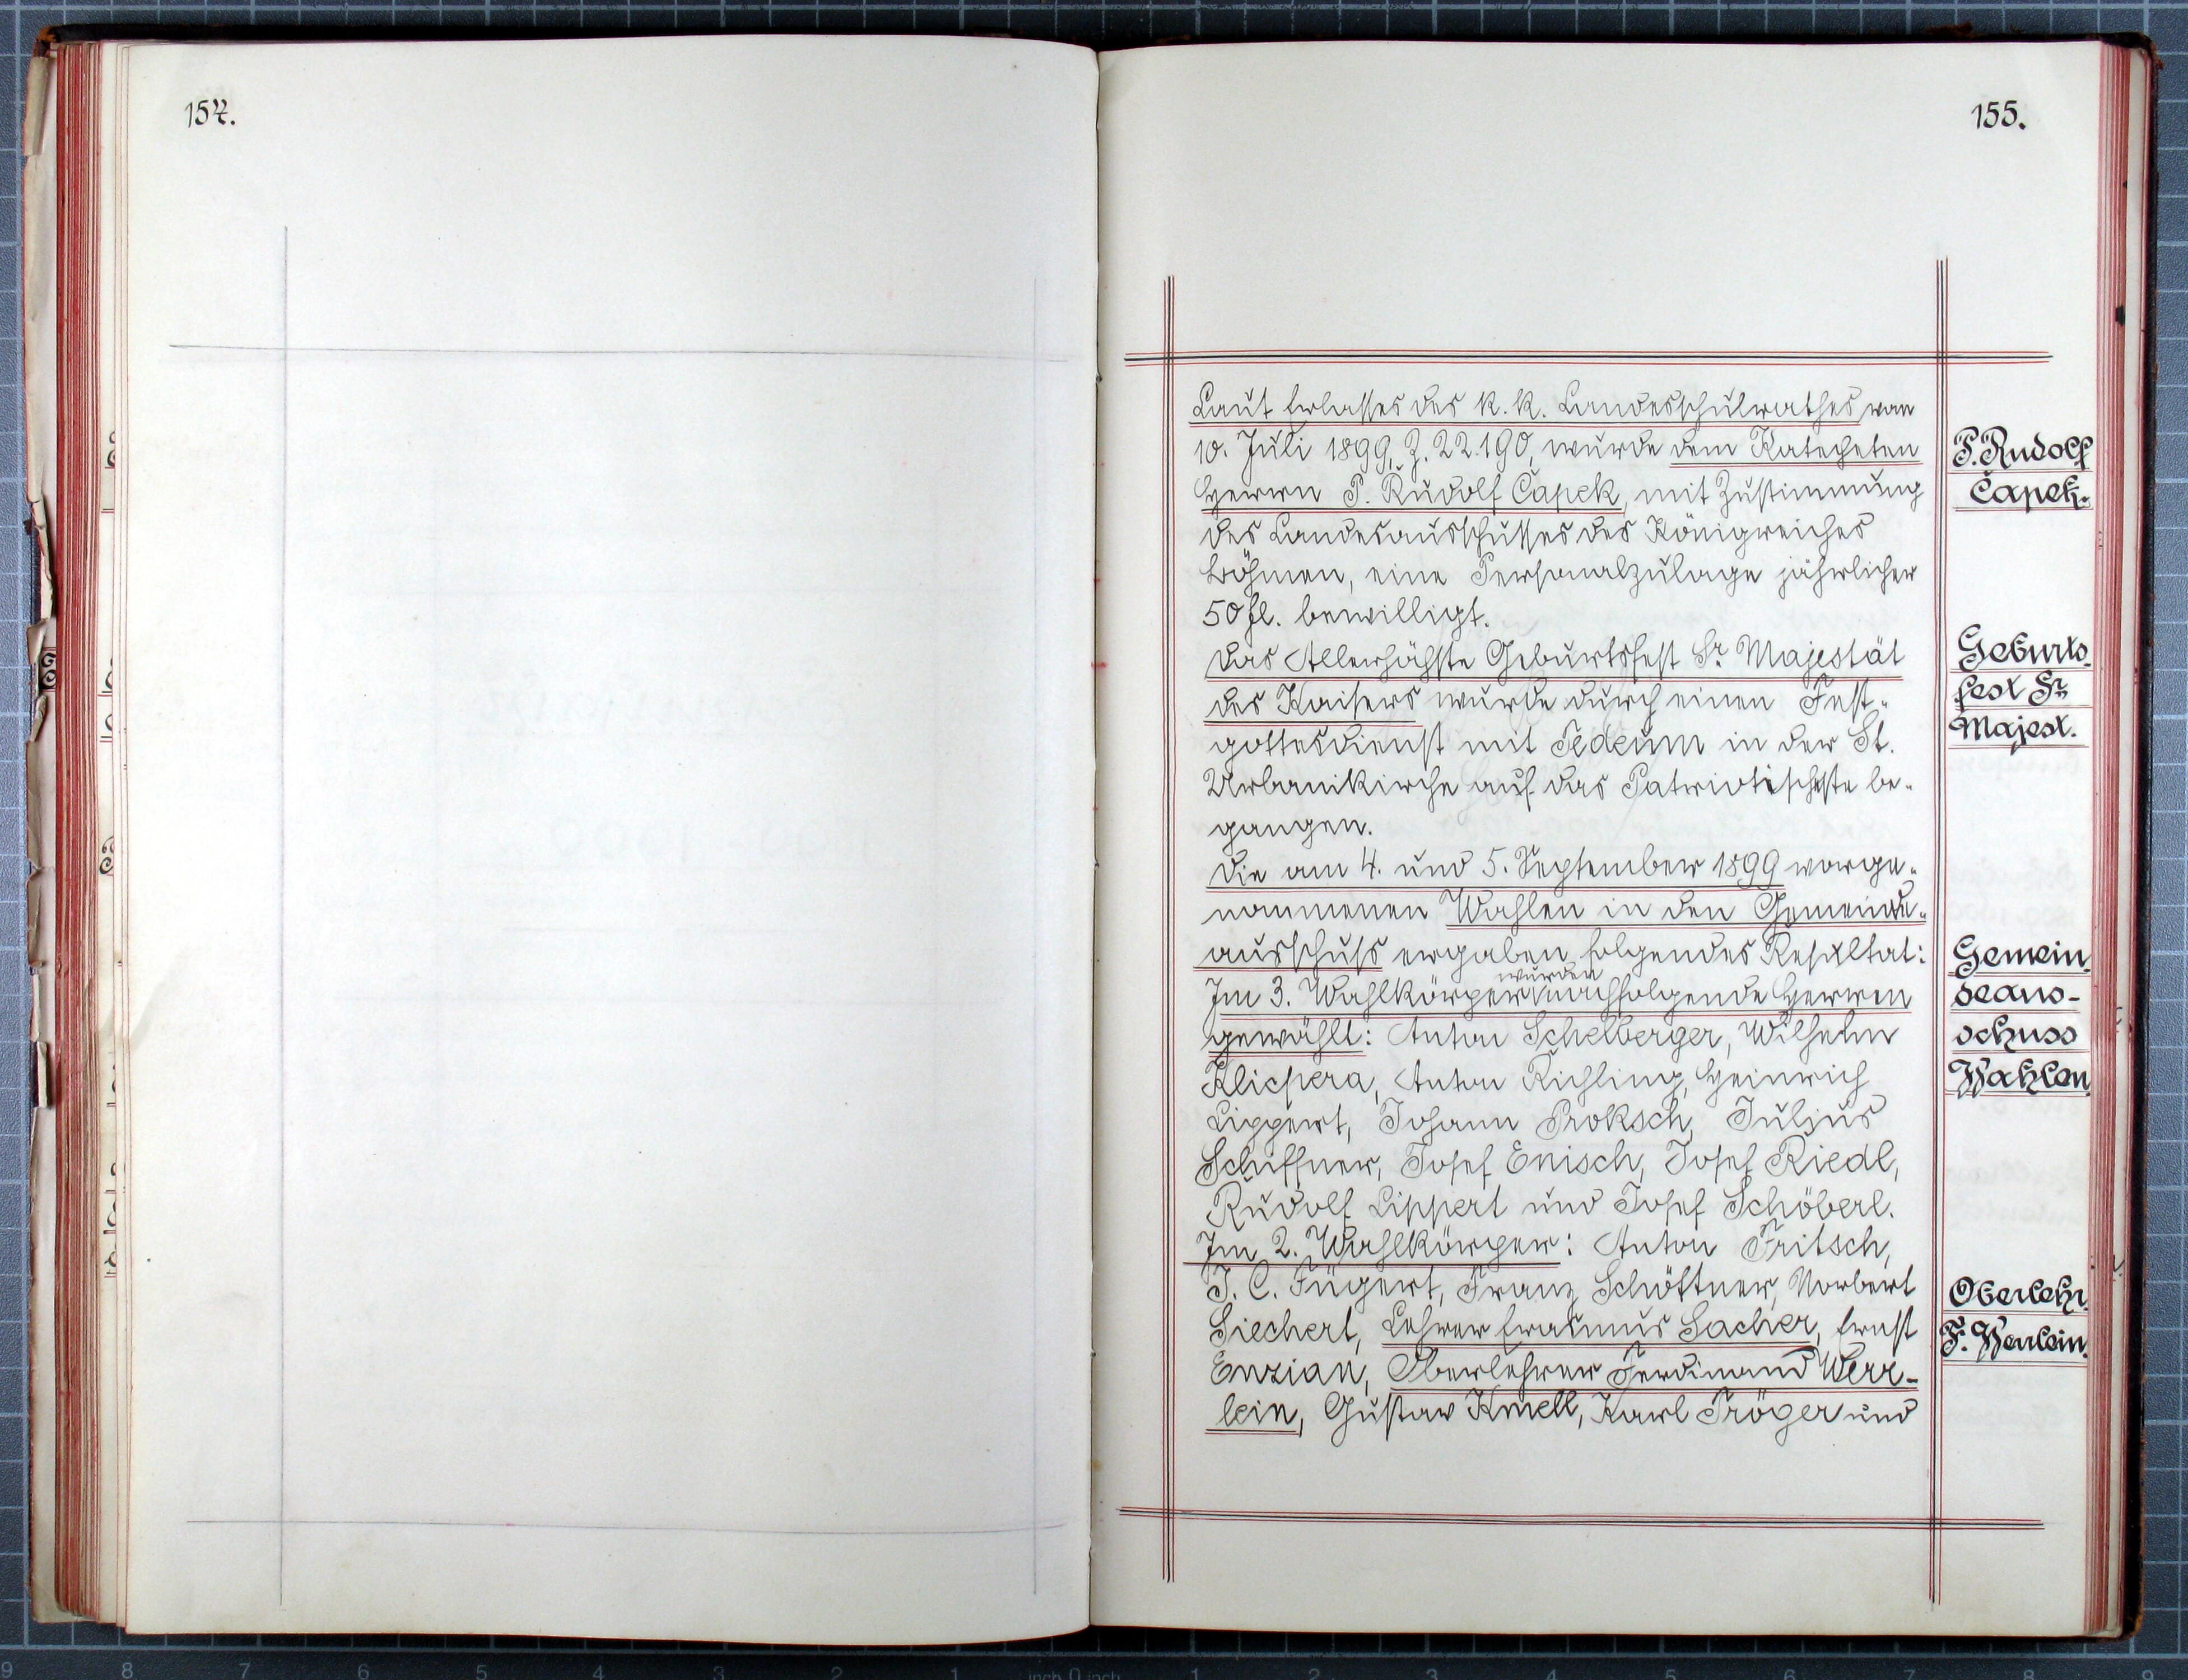 154.
155.
Laut Erlasses des k. k. Landesschulrathes vom
10. Juli 1899, Z. 22.190, wurde dem Katecheten
Herrn P. Rudolf Čapek, mit Zustimmung
des Landesausschusses des Königreiches
Böhmen, eine Personalzulage jährlicher
50 fl. bewilligt.
Das Allerhöchste Geburtsfest Sr. Majestät
des Kaisers wurde durch einen Fest-
gottesdienst mit Tedeum in der St.
Urbanikirche auf das Patriotischste be-
gangen.
Die am 4. und 5. September 1899 vorge-
nommenen Wahlen in den Gemeinde-
ausschuss ergaben folgendes Resultat:
Im 3. Wahlkörper wurden nachfolgende Herren
gewählt: Anton Schelberger, Wilhelm
Klicpera, Anton Richling, Heinrich
Lippert, Johann Proksch, Julius
Schiffner, Josef Enisch, Josef Riedl,
Rudolf Lippert und Josef Schöberl.
Im 2. Wahlkörper: Anton Fritsch,
J. C. Fügert, Franz Schöttner, Norbert
Siechert, Lehrer Erasmus Sacher, Ernst
Enzian, Oberlehrer Ferdinand Werr-
lein, Gustav Kmell, Karl Tröger und
P. Rudolf
Čapek.
Geburts-
fest Sr.
Majest.
Gemein-
deaus-
schuss
Wahlen
Oberlehr.
F. Werlein.